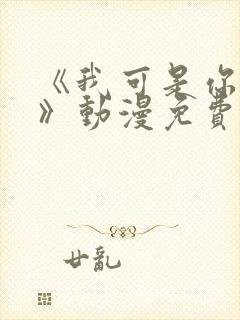 《我可是你
》動漫免費
廿亂